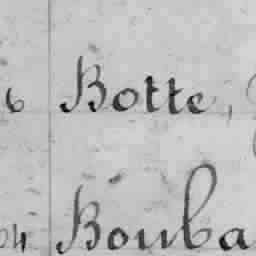 6 Botte,
04 Bouba